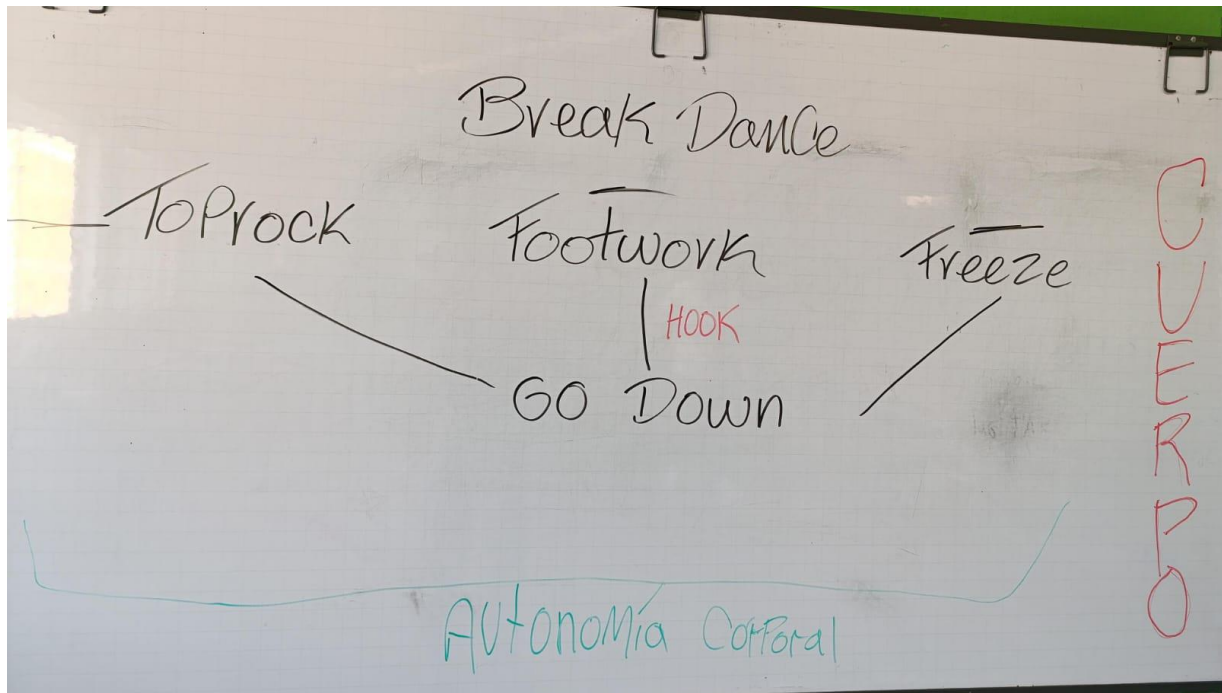 Break Dance
Toprock
Footwork
Freeze
HOOK
GO Down
Autonomía Corporal
CUERPO